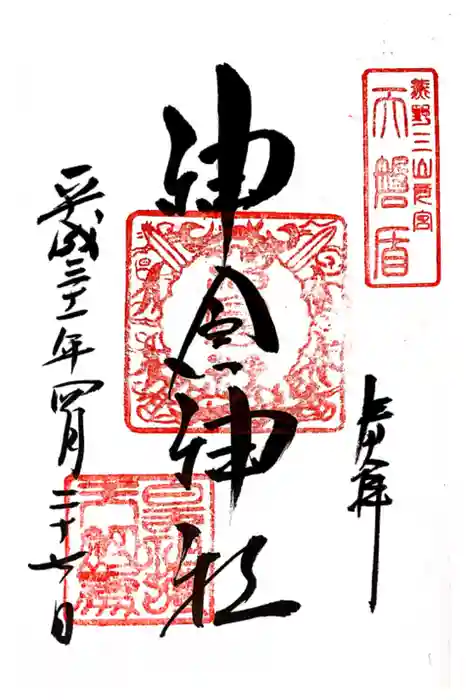 熊野三山元宮
天磐盾
奉拝
神倉神社
平成三十一年四月二十六日